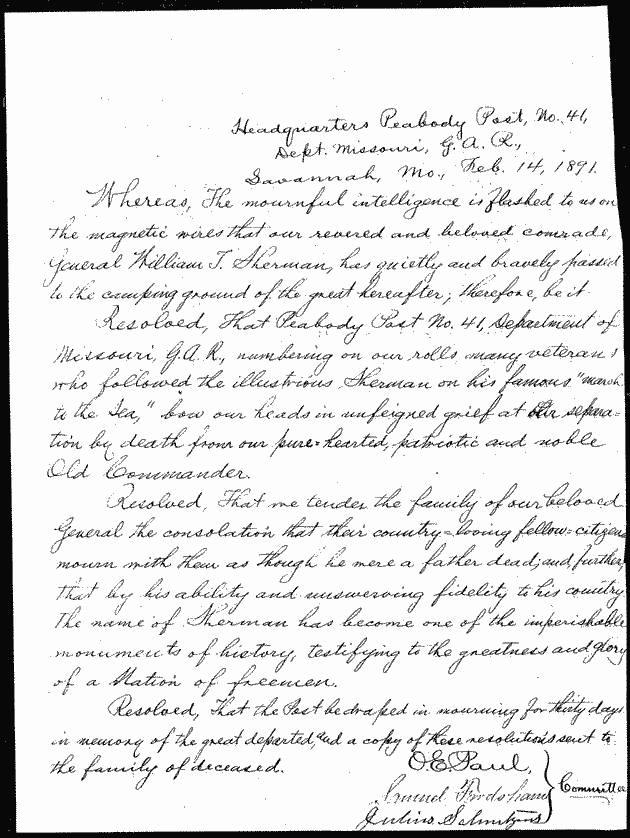 Headquarters Peabody Post, No. 41,
Dept. Missouri, G. A. R.,
Savannah, Mo., Feb. 14, 1891.
Whereas, The mournful intelligence is flashed to us on
the magnetic wires that our revered and beloved comrade,
General William T. Sherman, has quietly and bravely passed
to the camping ground of the great hereafter; therefore, be it
Resolved, That Peabody Post No. 41, Department of
Missouri, G.A.R., numbering on our rolls many veterans
who followed the illustrious Sherman on his famous "march
to the Sea," bow our heads in unfeigned grief at our separa=
tion by death from our pure=hearted, patriotic and noble
Old Commander.
Resolved, That we tender the family of our beloved
General the consolation that their country=loving fellow=citizens
mourn with them as though he were a father dead; and, further,
that by his ability and unswerving fidelity to his country
the name of Sherman has become one of the imperishable
monuments of history, testifying to the greatness and glory
of a Nation of freemen.
Resolved, That the Post be draped in mourning for thirty days
in memory of the great departed, and a copy of these resolutions sent to
the family of deceased.
O. E. Paul,
Samuel
Julius
Committee